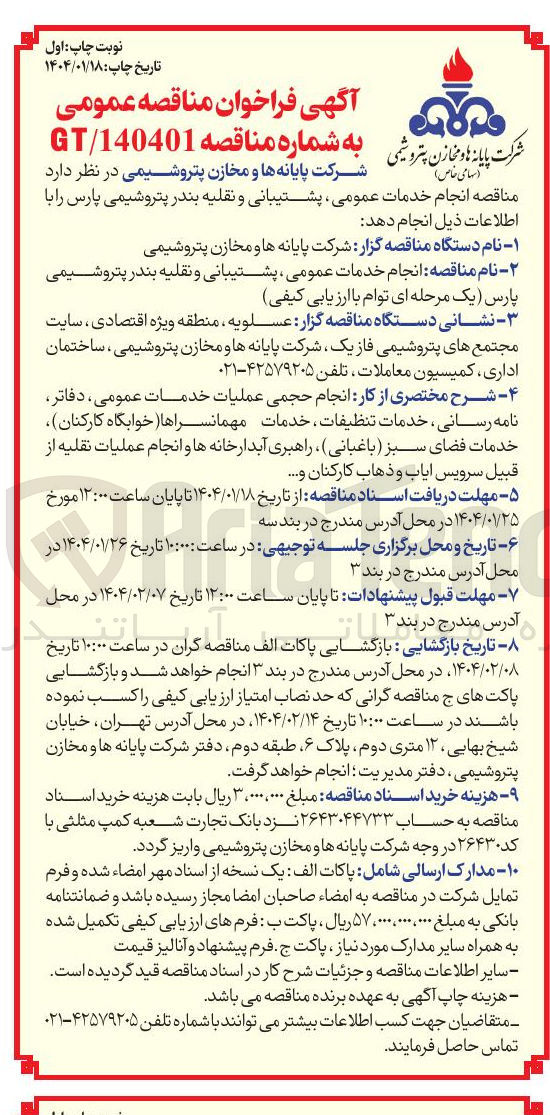 نوبت چاپ: اول
تاریخ چاپ: ۱۴۰۴/۰۱/۱۸
شرکت پایانه ها و مخازن پتروشیمی
(سهامی خاص)
آگهی فراخوان مناقصه عمومی
به شماره مناقصه GT/140401
شــرکت پایانه ها و مخازن پتروشــیمی در نظر دارد
مناقصه انجام خدمات عمومی، پشــتیبانی و نقلیه بندر پتروشیمی پارس را با
اطلاعات ذیل انجام دهد:
۱- نام دستگاه مناقصه گزار: شرکت پایانه ها و مخازن پتروشیمی
۲- نام مناقصه: انجام خدمات عمومی، پشــتیبانی و نقلیه بندر پتروشــیمی
پارس (یک مرحله ای توام با ارزیابی کیفی)
۳- نشــانی دســتگاه مناقصه گزار: عســلویه، منطقه ویژه اقتصادی، سایت
مجتمع های پتروشیمی فاز یک، شرکت پایانه ها و مخازن پتروشیمی، ساختمان
اداری، کمیسیون معاملات، تلفن ۴۲۵۷۹۲۰۵-۰۲۱
۴- شــرح مختصری از کار: انجام حجمی عملیات خدمــات عمومی، دفاتر،
نامه رســانی، خدمات تنظیفات، خدمات مهمانســراها (خوابگاه کارکنان)،
خدمات فضای ســبز (باغبانی)، راهبری آبدارخانه ها و انجام عملیات نقلیه از
قبیل سرویس ایاب و ذهاب کارکنان و...
۵- مهلت دریافت اســناد مناقصه: از تاریخ ۱۴۰۴/۰۱/۱۸ تا پایان ساعت ۱۲:۰۰ مورخ
۱۴۰۴/۰۱/۲۵ در محل آدرس مندرج در بند سه
۶- تاریخ و محل برگزاری جلســه توجیهی: در ساعت ۱۰:۰۰ تاریخ ۱۴۰۴/۰۱/۲۶ در
محل آدرس مندرج در بند ۳
۷- مهلت قبول پیشنهادات: تا پایان ســاعت ۱۲:۰۰ تاریخ ۱۴۰۴/۰۲/۰۷ در محل
آدرس مندرج در بند ۳
۸- تاریخ بازگشایی: بازگشــایی پاکات الف مناقصه گران در ساعت ۱۰:۰۰ تاریخ
۱۴۰۴/۰۲/۰۸، در محل آدرس مندرج در بند ۳ انجام خواهد شــد و بازگشــایی
پاکت های ج مناقصه گرانی که حد نصاب امتیاز ارزیابی کیفی را کســب نموده
باشــند در ســاعت ۱۰:۰۰ تاریخ ۱۴۰۴/۰۲/۱۴، در محل آدرس تهــران، خیابان
شیخ بهایی، ۱۲ متری دوم، پلاک ۶، طبقه دوم، دفتر شرکت پایانه ها و مخازن
پتروشیمی، دفتر مدیریت؛ انجام خواهد گرفت.
۹- هزینه خرید اســناد مناقصه: مبلغ ۳,۰۰۰,۰۰۰ ریال بابت هزینه خرید اســناد
مناقصه به حساب ۲۶۴۳۰۴۴۷۳۳ نــزد بانک تجارت شــعبه کمپ مثلثی با
کد ۲۶۴۳۰ در وجه شرکت پایانه ها و مخازن پتروشیمی واریز گردد.
۱۰- مدارک ارسالی شامل: پاکات الف: یک نسخه از اسناد مهر امضاء شده و فرم
تمایل شرکت در مناقصه به امضاء صاحبان امضا مجاز رسیده باشد و ضمانتنامه
بانکی به مبلغ ۵۷,۰۰۰,۰۰۰,۰۰۰ ریال، پاکت ب: فرم های ارزیابی کیفی تکمیل شده
به همراه سایر مدارک مورد نیاز، پاکت ج. فرم پیشنهاد و آنالیز قیمت
- سایر اطلاعات مناقصه و جزئیات شرح کار در اسناد مناقصه قید گردیده است.
- هزینه چاپ آگهی به عهده برنده مناقصه می باشد.
- متقاضیان جهت کسب اطلاعات بیشتر می توانند با شماره تلفن ۴۲۵۷۹۲۰۵-۰۲۱
تماس حاصل فرمایند.